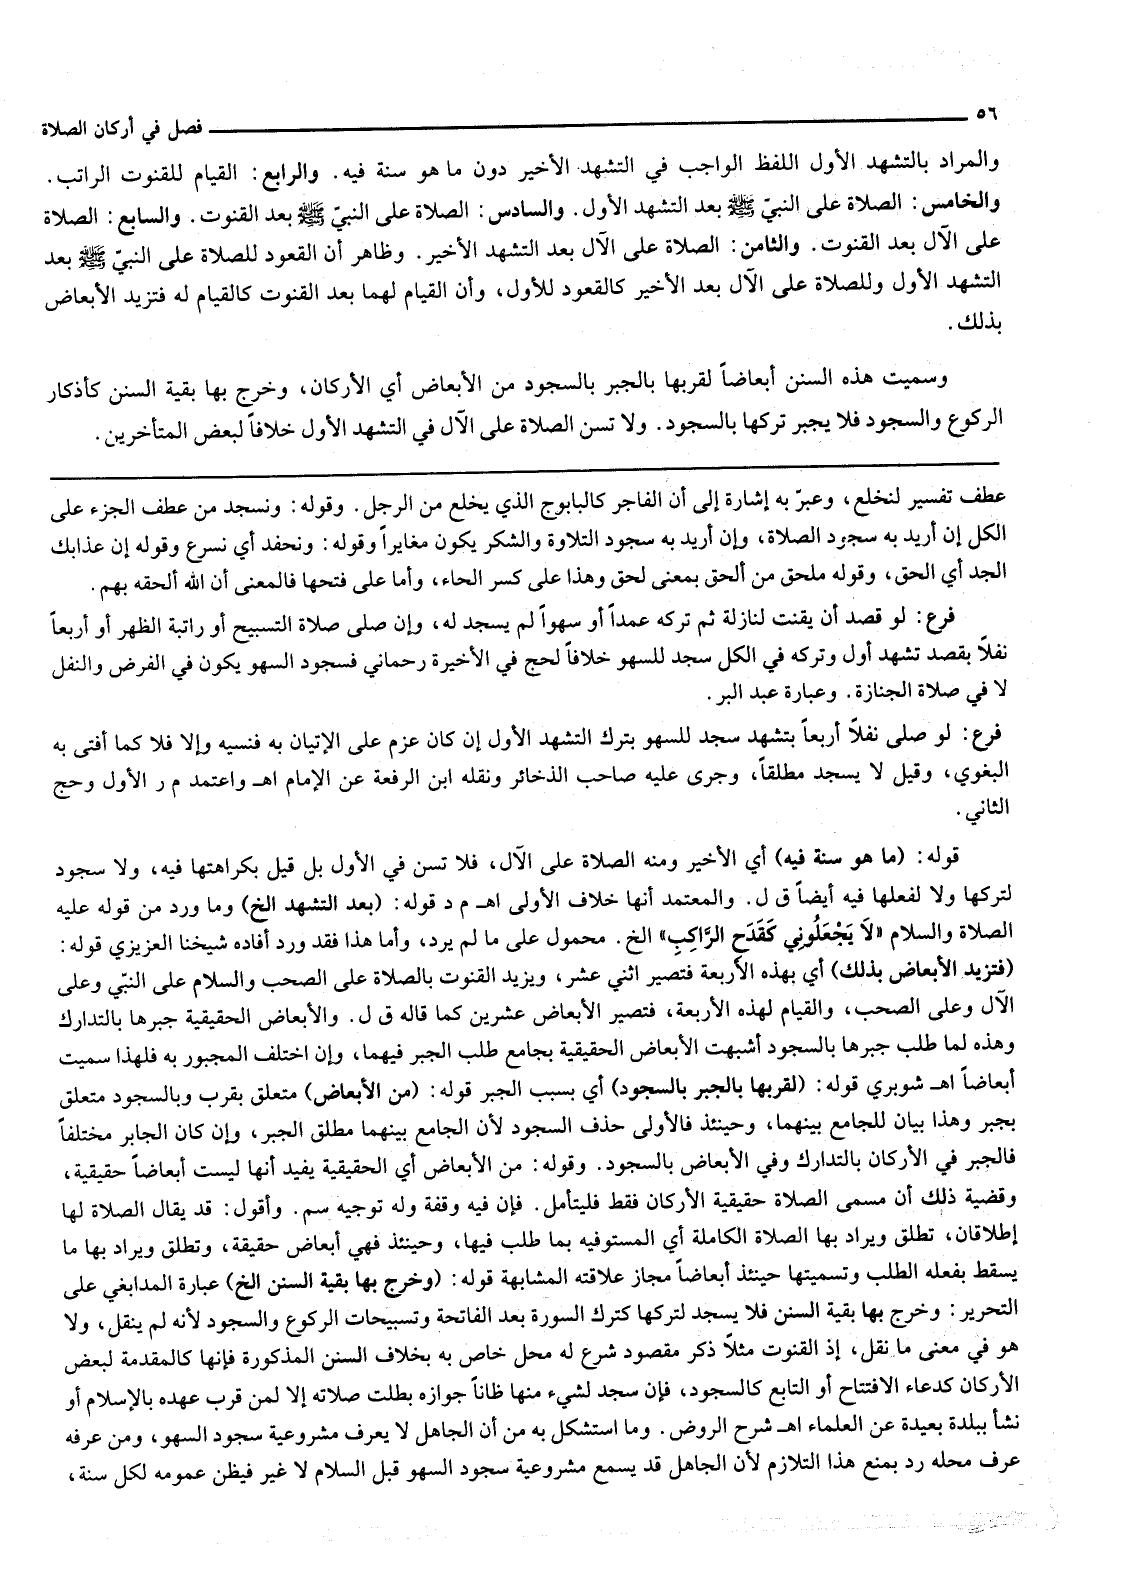 ٥٦ فصل في أركان الصلاة
والمراد بالتشهد الأول اللفظ الواجب في التشهد الأخير دون ما هو سنة فيه. والرابع: القيام للقنوت الراتب.
والخامس: الصلاة على النبيّ ﷺ بعد التشهد الأول. والسادس: الصلاة على النبيّ ﷺ بعد القنوت. والسابع: الصلاة
على الآل بعد القنوت. والثامن: الصلاة على الآل بعد التشهد الأخير. وظاهر أن القعود للصلاة على النبيّ ﷺ بعد
التشهد الأول وللصلاة على الآل بعد الأخير كالقعود للأول، وأن القيام لهما بعد القنوت كالقيام له فتزيد الأبعاض
بذلك.
وسميت هذه السنن أبعاضاً لقربها بالجبر بالسجود من الأبعاض أي الأركان، وخرج بها بقية السنن كأذكار
الركوع والسجود فلا يجبر تركها بالسجود. ولا تسن الصلاة على الآل في التشهد الأول خلافاً لبعض المتأخرين.
عطف تفسير لنخلع، وعبرّ به إشارة إلى أن الفاجر كالبابوج الذي يخلع من الرجل. وقوله: ونسجد من عطف الجزء على
الكل إن أريد به سجود الصلاة، وإن أريد به سجود التلاوة والشكر يكون مغايراً وقوله: ونحفد أي نسرع وقوله إن عذابك
الجد أي الحق، وقوله ملحق من ألحق بمعنى لحق وهذا على كسر الحاء، وأما على فتحها فالمعنى أن الله ألحقه بهم.
فرع: لو قصد أن يقنت لنازلة ثم تركه عمداً أو سهواً لم يسجد له، وإن صلى صلاة التسبيح أو راتبة الظهر أو أربعاً
نفلاً بقصد تشهد أول وتركه في الكل سجد للسهو خلافاً لحج في الأخيرة رحماني فسجود السهو يكون في الفرض والنفل
لا في صلاة الجنازة. وعبارة عبد البر.
فرع: لو صلى نفلاً أربعاً بتشهد سجد للسهو بترك التشهد الأول إن كان عزم على الإتيان به فنسيه وإلا فلا كما أفتى به
البغوي، وقيل لا يسجد مطلقاً، وجرى عليه صاحب الذخائر ونقله ابن الرفعة عن الإمام اهـ واعتمد م ر الأول وحج
الثاني.
قوله: (ما هو سنة فيه) أي الأخير ومنه الصلاة على الآل، فلا تسن في الأول بل قيل بكراهتها فيه، ولا سجود
لتركها ولا لفعلها فيه أيضاً ق ل. والمعتمد أنها خلاف الأولى اهـ م د قوله: (بعد التشهد الخ) وما ورد من قوله عليه
الصلاة والسلام «لاَ يَجْعَلُونِي كَقَدَحِ الرَّاكِبِ» الخ. محمول على ما لم يرد، وأما هذا فقد ورد أفاده شيخنا العزيزي قوله:
(فتزيد الأبعاض بذلك) أي بهذه الأربعة فتصير اثني عشر، ويزيد القنوت بالصلاة على الصحب والسلام على النبّي وعلى
الآل وعلى الصحب، والقيام لهذه الأربعة، فتصير الأبعاض عشرين كما قاله ق ل. والأبعاض الحقيقية جبرها بالتدارك
وهذه لما طلب جبرها بالسجود أشبهت الأبعاض الحقيقية بجامع طلب الجبر فيهما، وإن اختلف المجبور به فلهذا سميت
أبعاضاً اهـ شوبري قوله: (لقربها بالجبر بالسجود) أي بسبب الجبر قوله: (من الأبعاض) متعلق بقرب وبالسجود متعلق
بجبر وهذا بيان للجامع بينهما، وحينئذ فالأولى حذف السجود لأن الجامع بينهما مطلق الجبر، وإن كان الجابر مختلفاً
فالجبر في الأركان بالتدارك وفي الأبعاض بالسجود. وقوله: من الأبعاض أي الحقيقية يفيد أنها ليست أبعاضاً حقيقية،
وقضية ذلك أن مسمى الصلاة حقيقية الأركان فقط فليتأمل. فإن فيه وقفة وله توجيه سم. وأقول: قد يقال الصلاة لها
إطلاقان، تطلق ويراد بها الصلاة الكاملة أي المستوفيه بما طلب فيها، وحينئذ فهي أبعاض حقيقة، وتطلق ويراد بها ما
يسقط بفعله الطلب وتسميتها حينئذ أبعاضاً مجاز علاقته المشابهة قوله: (وخرج بها بقية السنن الخ) عبارة المدابغي على
التحرير: وخرج بها بقية السنن فلا يسجد لتركها كترك السورة بعد الفاتحة وتسبيحات الركوع والسجود لأنه لم ينقل، ولا
هو في معنى ما نقل، إذ القنوت مثلاً ذكر مقصود شرع له محل خاص به بخلاف السنن المذكورة فإنها كالمقدمة لبعض
الأركان كدعاء الافتتاح أو التابع كالسجود، فإن سجد لشيء منها ظاناً جوازه بطلت صلاته إلا لمن قرب عهده بالإسلام أو
نشأ ببلدة بعيدة عن العلماء اهـ شرح الروض. وما استشكل به من أن الجاهل لا يعرف مشروعية سجود السهو، ومن عرفه
عرف محله رد بمنع هذا التلازم لأن الجاهل قد يسمع مشروعية سجود السهو قبل السلام لا غير فيظن عمومه لكل سنة،